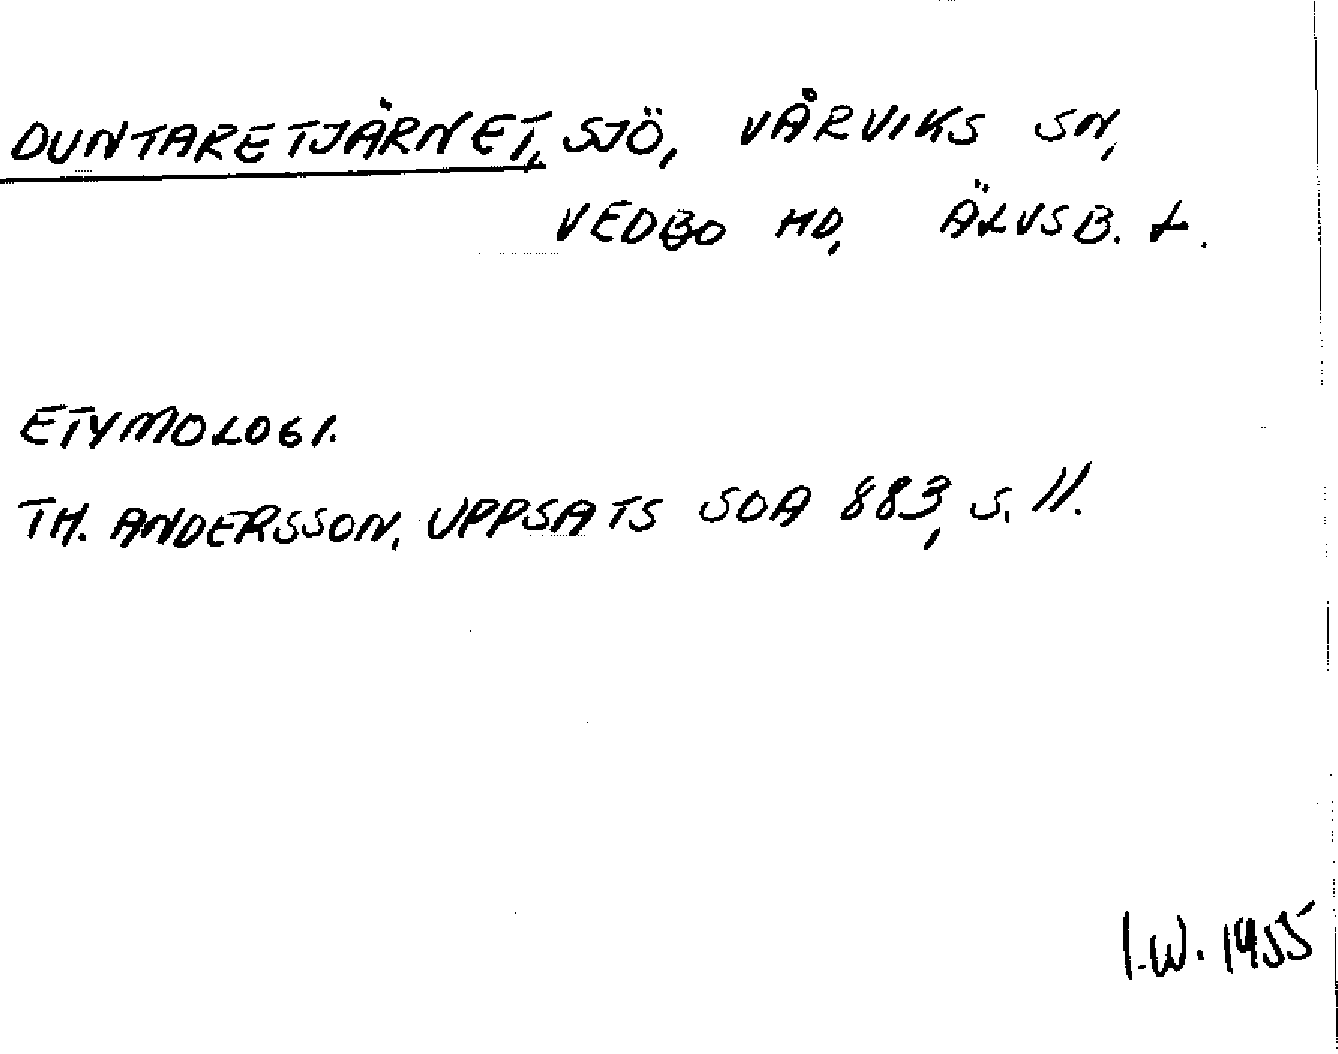 DUNTARETJÄRNET, SJÖ, VÅRVIKS SN,
VEDBO HD, ÄLVSB. L.
ETYMOLOGI.
TH. ANDERSSON, UPPSATS SOA 883, S. 11.
I.W. 1955